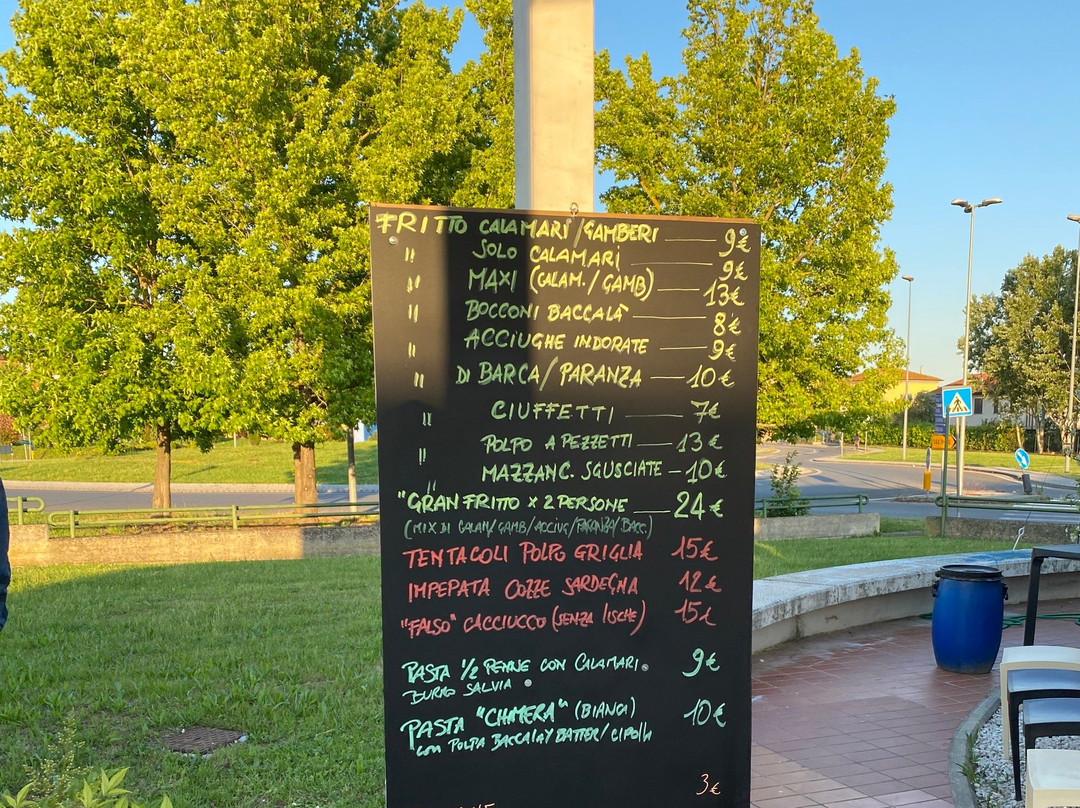 FRITTO CALAMARI/GAMBERI — 9€
" SOLO CALAMARI — 9€
" MAXI (CALAM./GAMB) — 13€
" BOCCONI BACCALÀ — 8€
" ACCIUGHE INDORATE — 9€
" DI BARCA/PARANZA — 10€
" CIUFFETTI — 7€
" POLPO A PEZZETTI — 13€
" MAZZANC. SGUSCIATE — 10€
"GRAN FRITTO x 2 PERSONE — 24€
(MIX DI CALAM/GAMB/ACCIUG/PARANZA/BACC.)
TENTACOLI POLPO GRIGLIA 15€
IMPEPATA COZZE SARDEGNA 12€
"FALSO" CACCIUCCO (SENZA LISCHE) 15€
PASTA 1/2 PENNE CON CALAMARI 9€
BURRO SALVIA
PASTA "CHIMERA" (BIANCA) 10€
CON POLPA BACCALÀ/DATTER/CIPOLL
3€